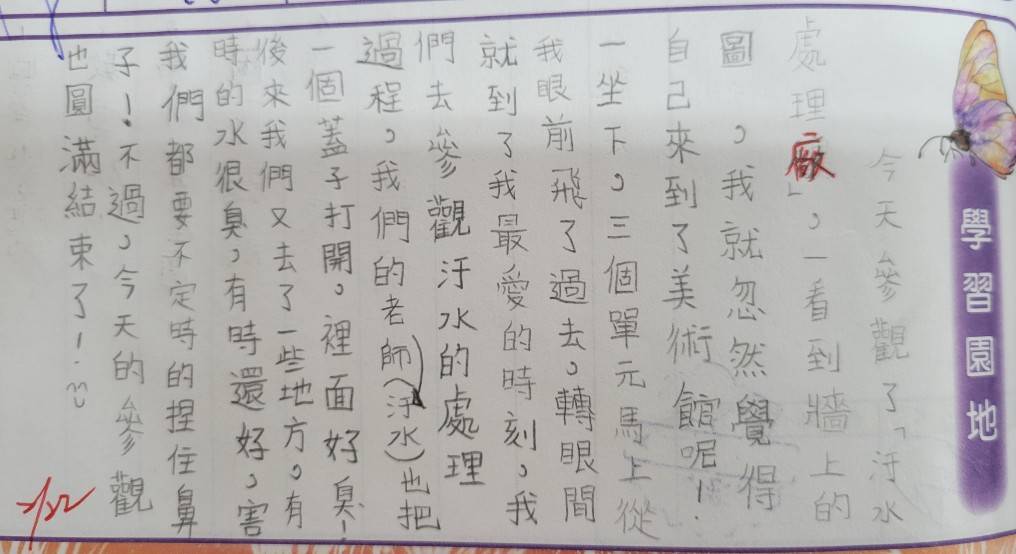 學習園地
今天參觀了「汙水
處理廠」，一看到牆上的
圖，我就忽然覺得
自己來到了美術館呢！
一坐下，三個單元馬上從
我眼前飛了過去，轉眼間
就到了我最愛的時刻，我
們去參觀汙水的處理
過程，我們的老師(汙水)也把
一個蓋子打開，裡面好臭！
後來我們又去了一些地方，有
時的水很臭，有時還好，害
我們都要不定時的捏住鼻
子！不過，今天的參觀
也圓滿結束了！